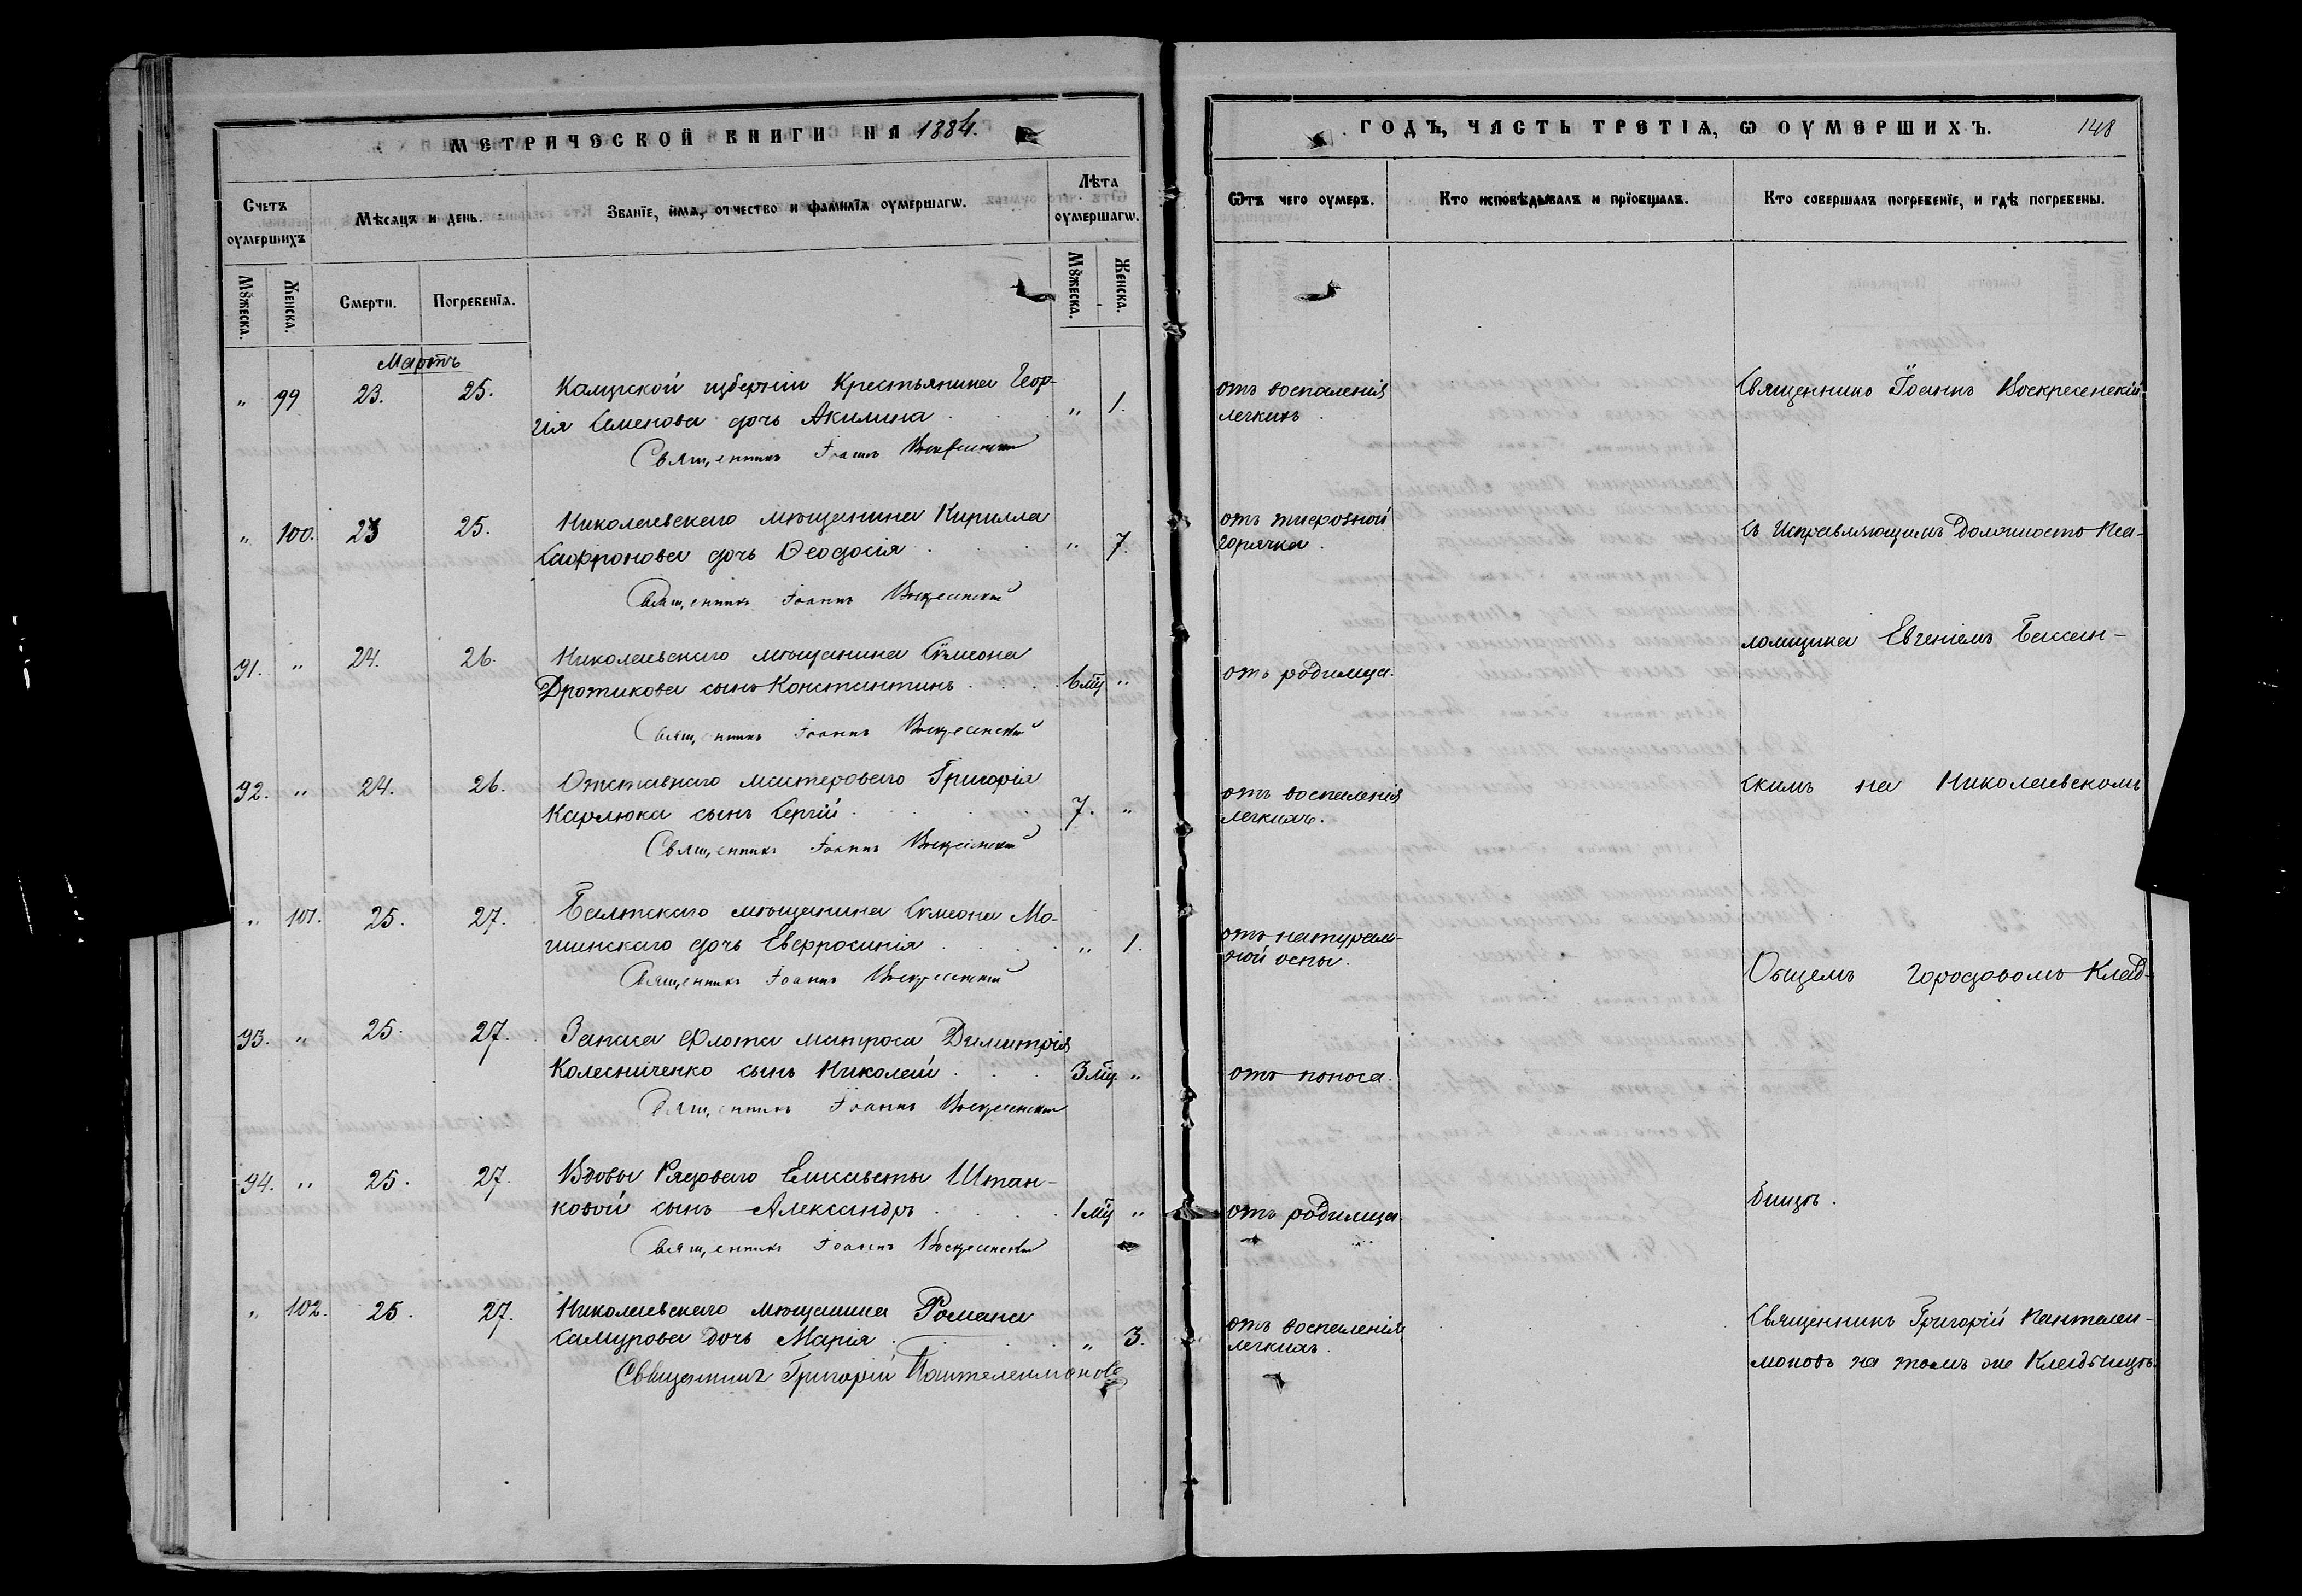 МЕТРИЧЕСКОЙ КНИГИ НА 1884.
Счетъ оумершихъ
Мѣсяцъ и день.
Званїе, имя, отчество и фамилїя оумершагѡ.
Лѣта оумершагѡ.
Мꙋжеска.
Женска.
Смерти.
Погребенїя.
Мꙋжеска.
Женска.
Мартъ
„ 99 23. 25. Калужской губерніи Крестьянина Геор-
гія Семенова дочь Акилина „ 1.
Священникъ Іоаннъ Воскресенскій
„ 100. 23 25. Николаевскаго мѣщанина Кирилла
Сафронова дочь Ѳеодосія „ 7.
Священникъ Іоаннъ Воскресенскій
91. „ 24. 26. Николаевскаго мѣщанина Сѵмеона
Дротикова сынъ Константинъ 6 мц „
Священникъ Іоаннъ Воскресенскій
92. „ 24. 26. Отставнаго мастероваго Григорія
Карлюка сынъ Сергій 7. „
Священникъ Іоаннъ Воскресенскій
„ 101. 25. 27. Балтскаго мѣщанина Сѵмеона Мо-
шинскаго дочь Евфросинія „ 1.
Священникъ Іоаннъ Воскресенскій
93. „ 25. 27. Запаса Флота матроса Димитрія
Колесниченко сынъ Николай 3 мц. „
Священникъ Іоаннъ Воскресенскій
94. „ 25. 27. Вдовы Рядоваго Елисаветы Штан-
ковой сынъ Александръ 1 мц „
Священникъ Іоаннъ Воскресенскій
„ 102. 25. 27. Николаевскаго мѣщанина Романа
Самурова дочь Марія „ 3.
Священникъ Григорій Пантелеимоновъ
ГОДЪ, ЧАСТЬ ТРЕТІЯ, Ѡ ОУМЕРШИХЪ. 148
Ѿтъ чего оумеръ.
Кто исповѣдывалъ и прїобщалъ.
Кто совершалъ погребенїе, и гдѣ погребены.
отъ воспаленія
легкихъ
отъ тифозной
горячки.
отъ родимца.
отъ воспаленія
легкихъ.
отъ натураль-
ной оспы.
отъ поноса.
отъ родимца.
отъ воспаленія
легкихъ.
Священникъ Іоаннъ Воскресенскій
съ Исправляющимъ Должность Пса-
ломщика Евгеніемъ Бассан-
скимъ на Николаевскомъ
Общемъ городовомъ Клад-
бищѣ.
Священникъ Григорій Пантелеи-
моновъ на томъ же Кладбищѣ.